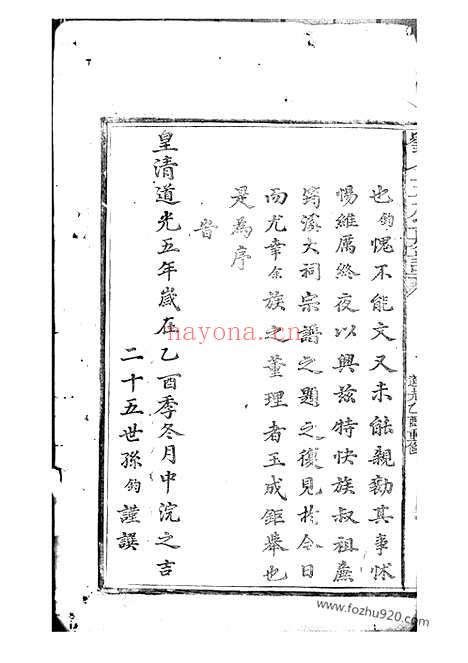 也鈞愧不能文又未能親勷其事怵
惕維厲終夜以興茲特快族叔祖廌
筠溪大祠宗譜之題之復見於今日
而尤幸余族之董理者玉成鉅舉也
是為序
皇清道光五年歲在乙酉季冬月中浣之吉
二十五世孫鈞謹譔
道光乙酉重修
hayona.cn
www.fozhu920.com